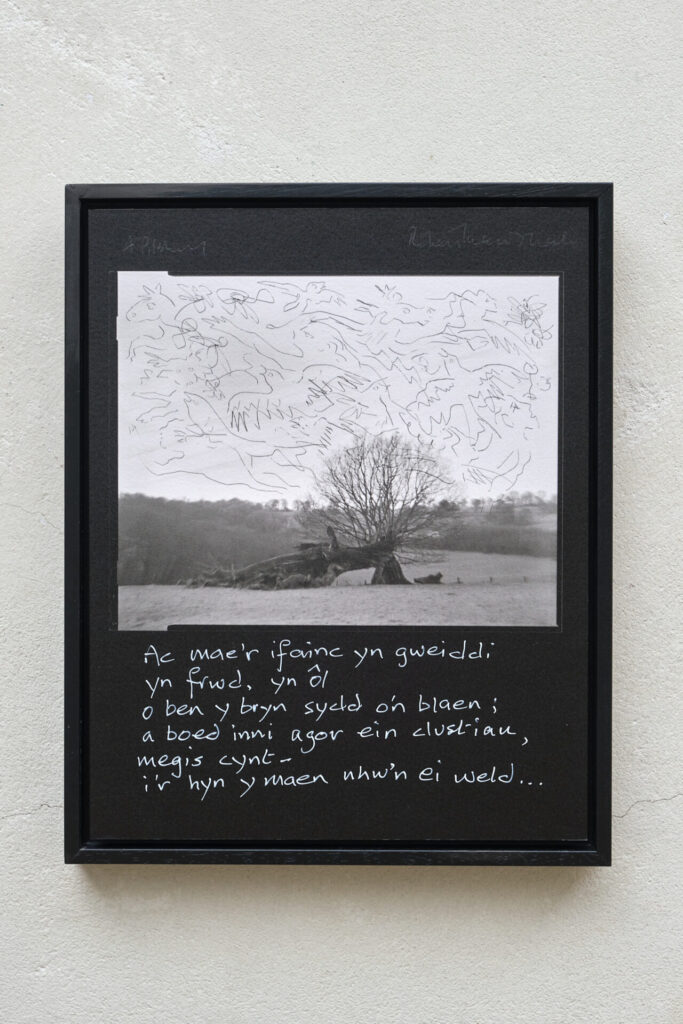 Ac mae'r ifainc yn gweiddi
yn frwd, yn ôl
o ben y bryn sydd o'n blaen;
a boed inni agor ein clustiau,
megis cynt –
i'r hyn y maen nhw'n ei weld...